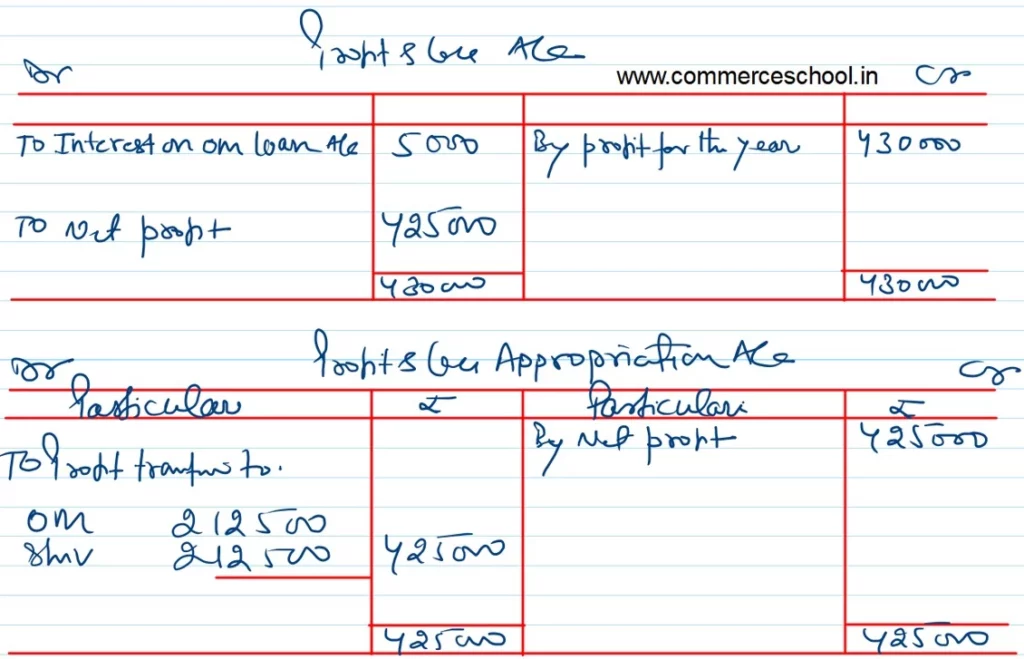 Profit & Loss A/c
Dr www.commerceschool.in Cr
To Interest on Om loan A/c 5000 By profit for the year 430000
To Net profit 425000
430000 430000
Dr Profit & Loss Appropriation A/c Cr
Particular ₹ Particulars ₹
By Net profit 425000
To Profit transfer to.
Om 212500
Shiv 212500 425000
425000 425000